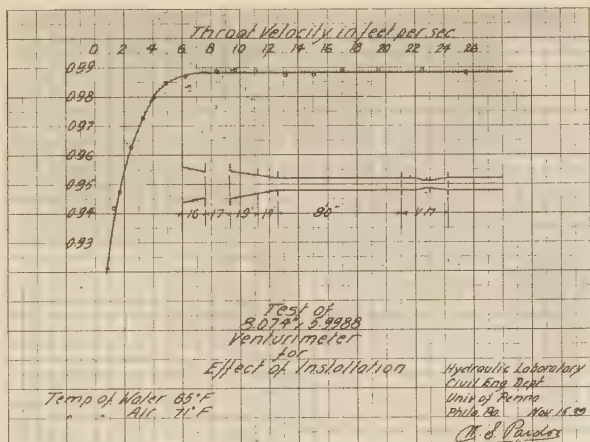 Throat Velocity in feet per sec.
0 2 4 6 8 10 12 14 16 18 20 22 24 26
0.99
0.98
0.97
0.96
0.95
0.94
0.93
16 17 19 17 80" V.M
Test of
8.074" x 5.9988
Venturimeter
for
Effect of Installation
Temp of Water 65°F
" " Air 71°F
Hydraulic Laboratory
Civil Eng Dept
Univ of Penna
Phila. Pa. Nov 15
W. S. Pardoe